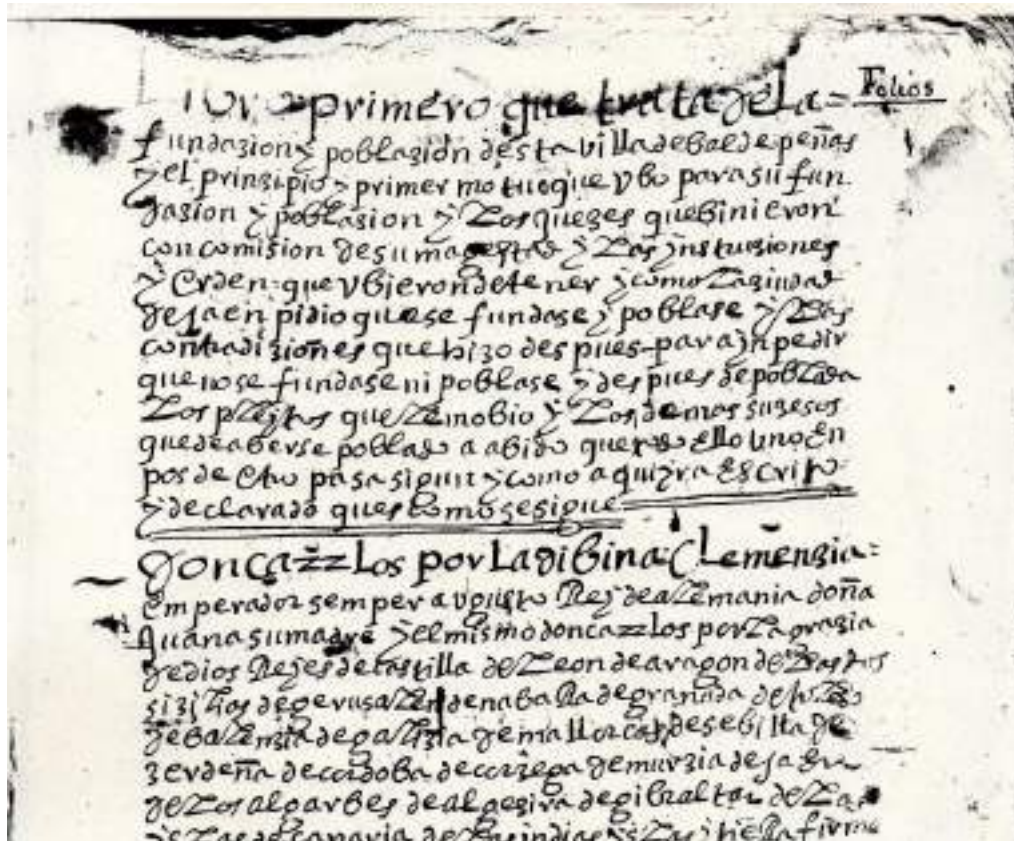 primero que trata de la =
Folios
fundazion y poblazion desta villa debalde peñas
y el prinzipio y primer motivo que vbo para su fun
dasion y poblasion y los quezes que binieron
con comision de su magestad y las ynstruziones
y Orden que vbieron de tener y como la ziudad
de jaen pidio que se fundase y poblase y las
contradiziones que hizo des pues para ynpedir
que no se fundase ni poblase y des pues de poblada
los pleytos que le mobio y los demas suzesos
que de aberse poblado a abido que todo ello uno En
pos de Otro pasa sigun y como aqui yra Escrito
y declarado ques como se sigue
don cazzlos por la dibina Clemenzia =
Emperador semper augusto Rey de alemania doña
quana su madre y el mismo don cazzlos por la grazia
de dios Reyes de castilla de leon de aragon de las dos
sizilias de gerusalen de nabaRa de granada de toledo
de balenzia de galizia de mallorcas de sebilla de
zerdeña de cordoba de corzega de murzia de jaen
de los algarbes de algezira de gibraltar de las
yslas de canaria de las indias yslas y tieRa firme